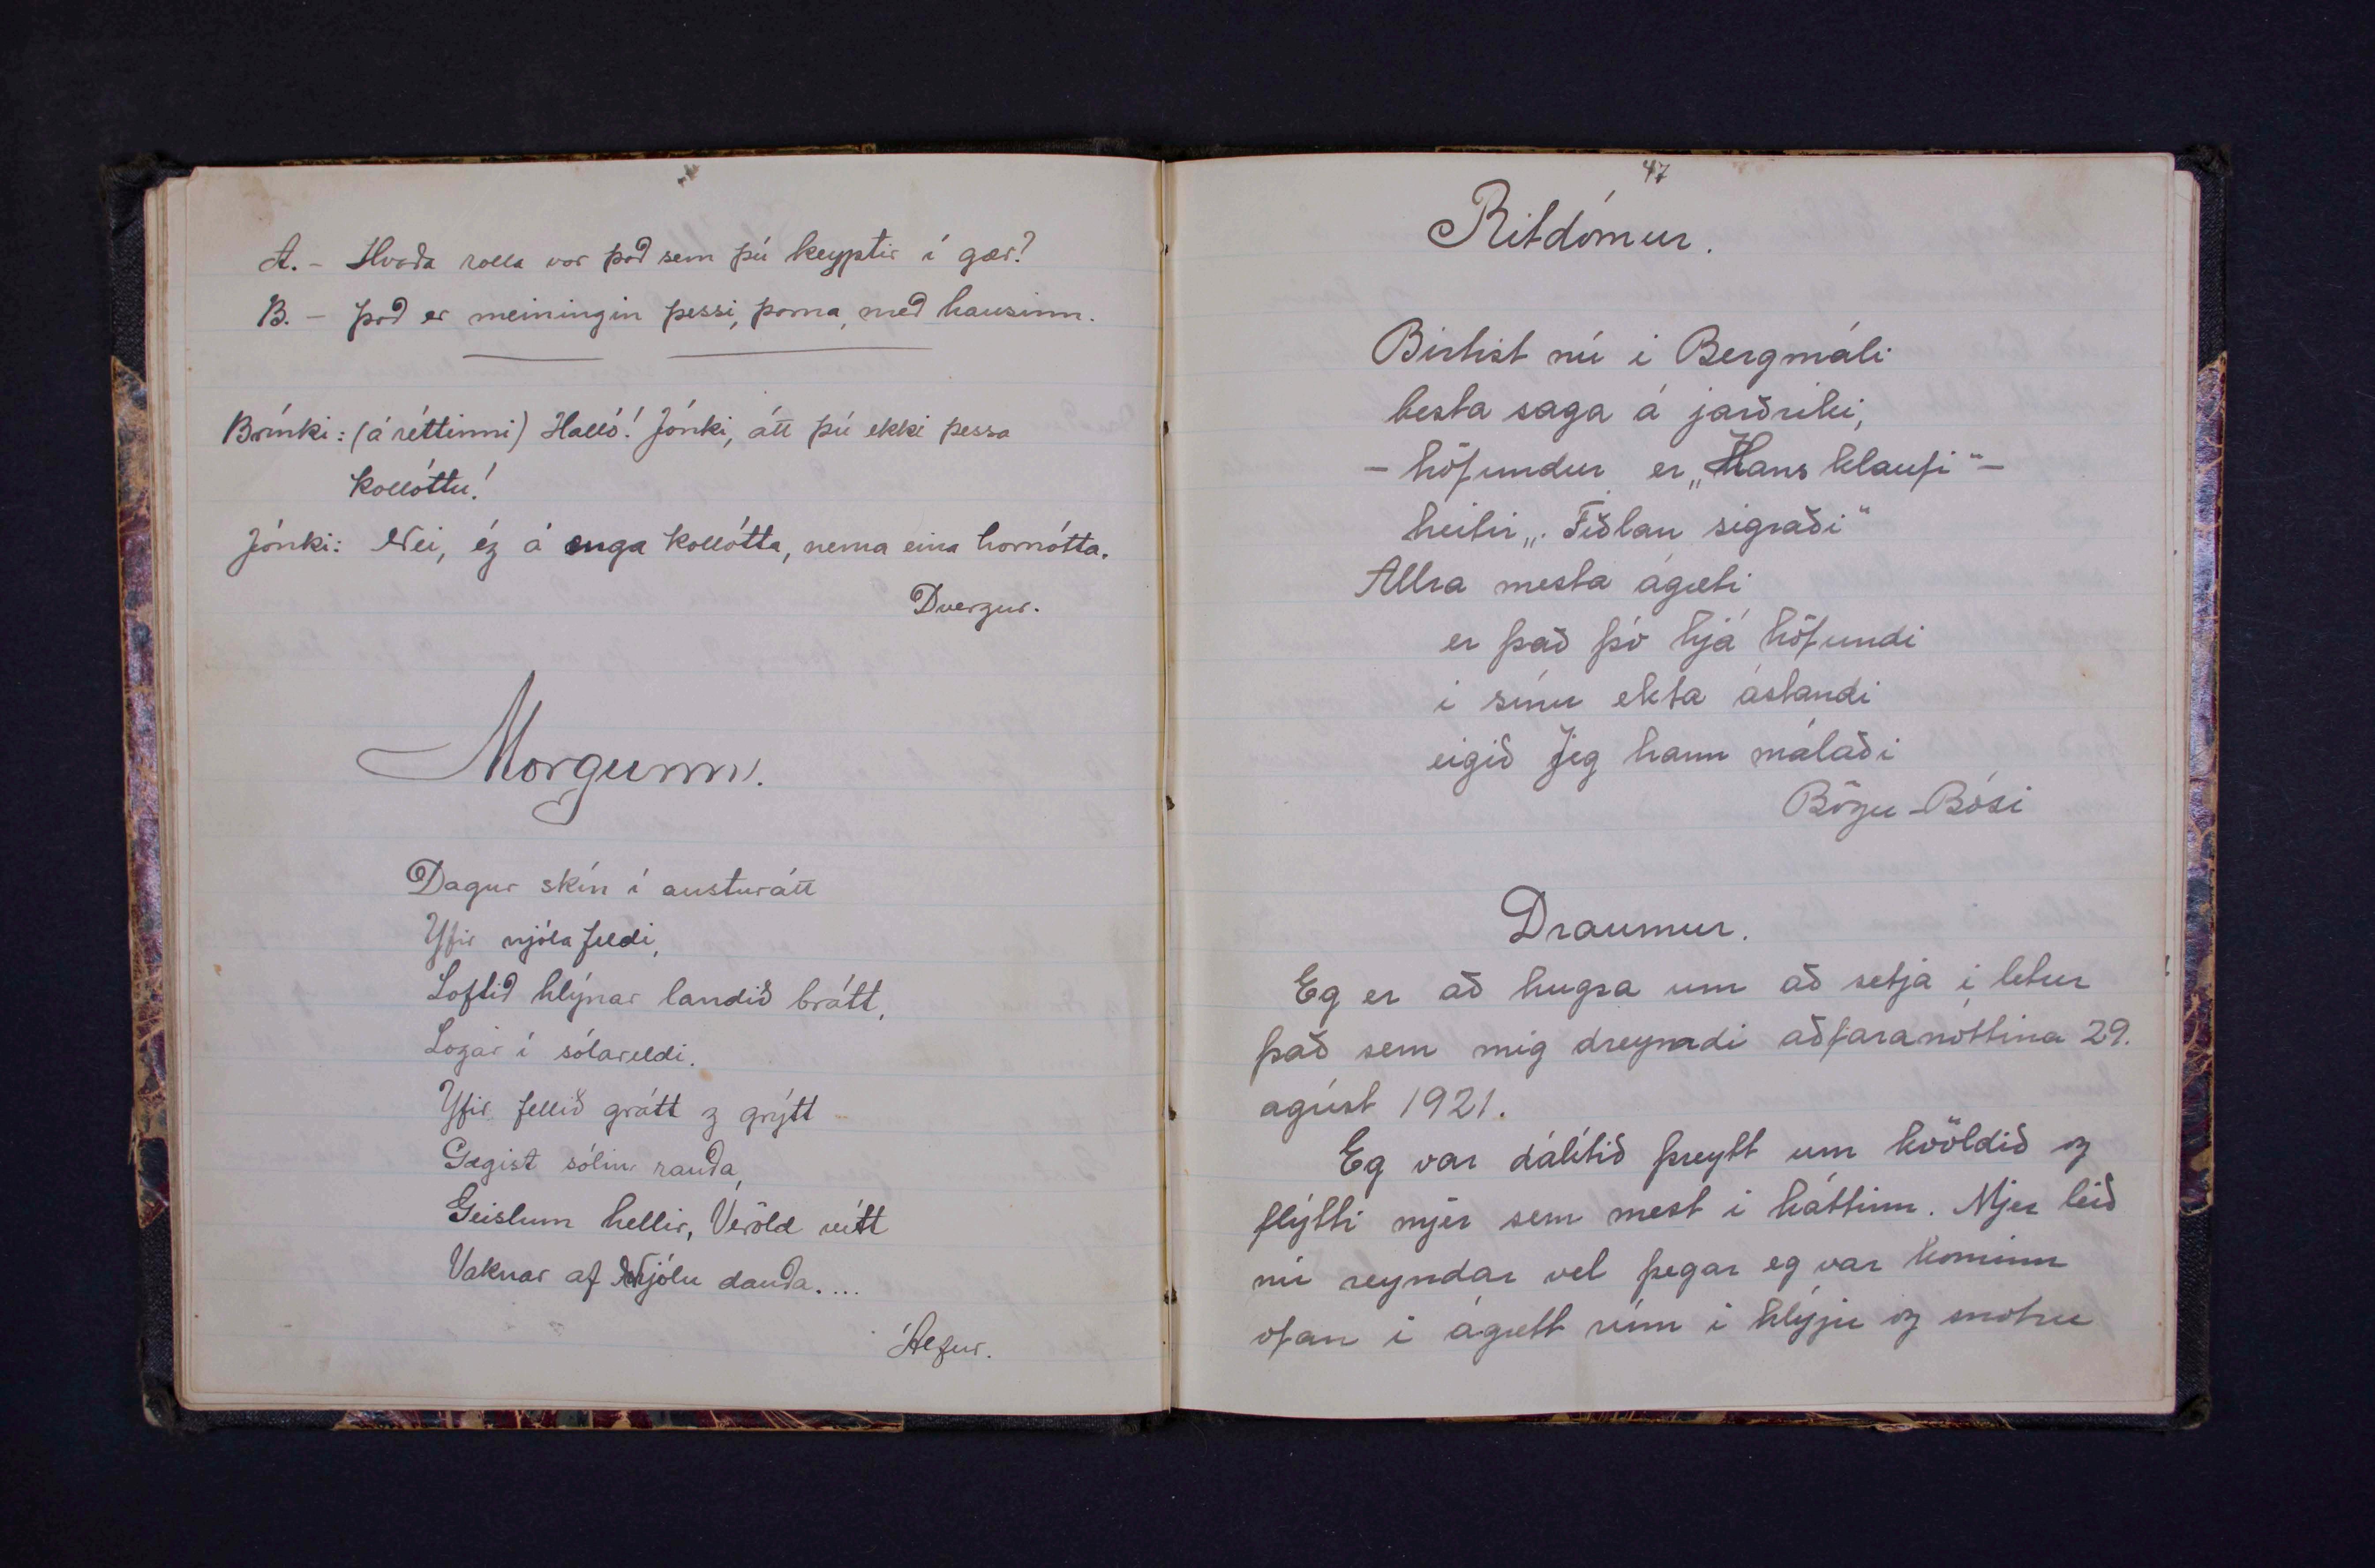 A. - Hvaða rolla var það sem þú keyptir í gær?
B. - Það er meiningin þessi, þarna, með hausinn.
Brínki: (á réttinni) Halló! Jónki, átt þú ekki þessa
kollóttu!
Jónki: Nei, ég á enga kollótta, nema eina hornótta.
Dvergur.
Morgunn.
Dagur skín í austurátt
Yfir njóla feldi,
Loftið hlýnar landið brátt,
Logar í sólareldi.
Yfir fellið grátt og grýtt
Gægist sólin rauða,
Geislum hellir, Veröld vítt
Vaknar af Njólu dauða....
Álfur.
47
Ritdómur.
Birtist nú i Bergmáli
besta saga á jarðriki,
- höfundur er „Hans klaufi" -
heitir „Fiðlan sigraði"
Allra mesta ágæti
er það þó hjá höfundi
i sínu ekta ástandi
eigið Jeg hann málaði
Bögu-Bósi
Draumur.
Eg er að hugsa um að setja i letur
það sem mig dreymdi aðfaranóttina 29.
agúst 1921.
Eg var dálítið þreytt um kvöldið og
flýtti mjér sem mest i háttinn. Mjer leið
nú reyndar vel þegar eg var kominn
ofan i ágætt rúm i hlýju og snotru